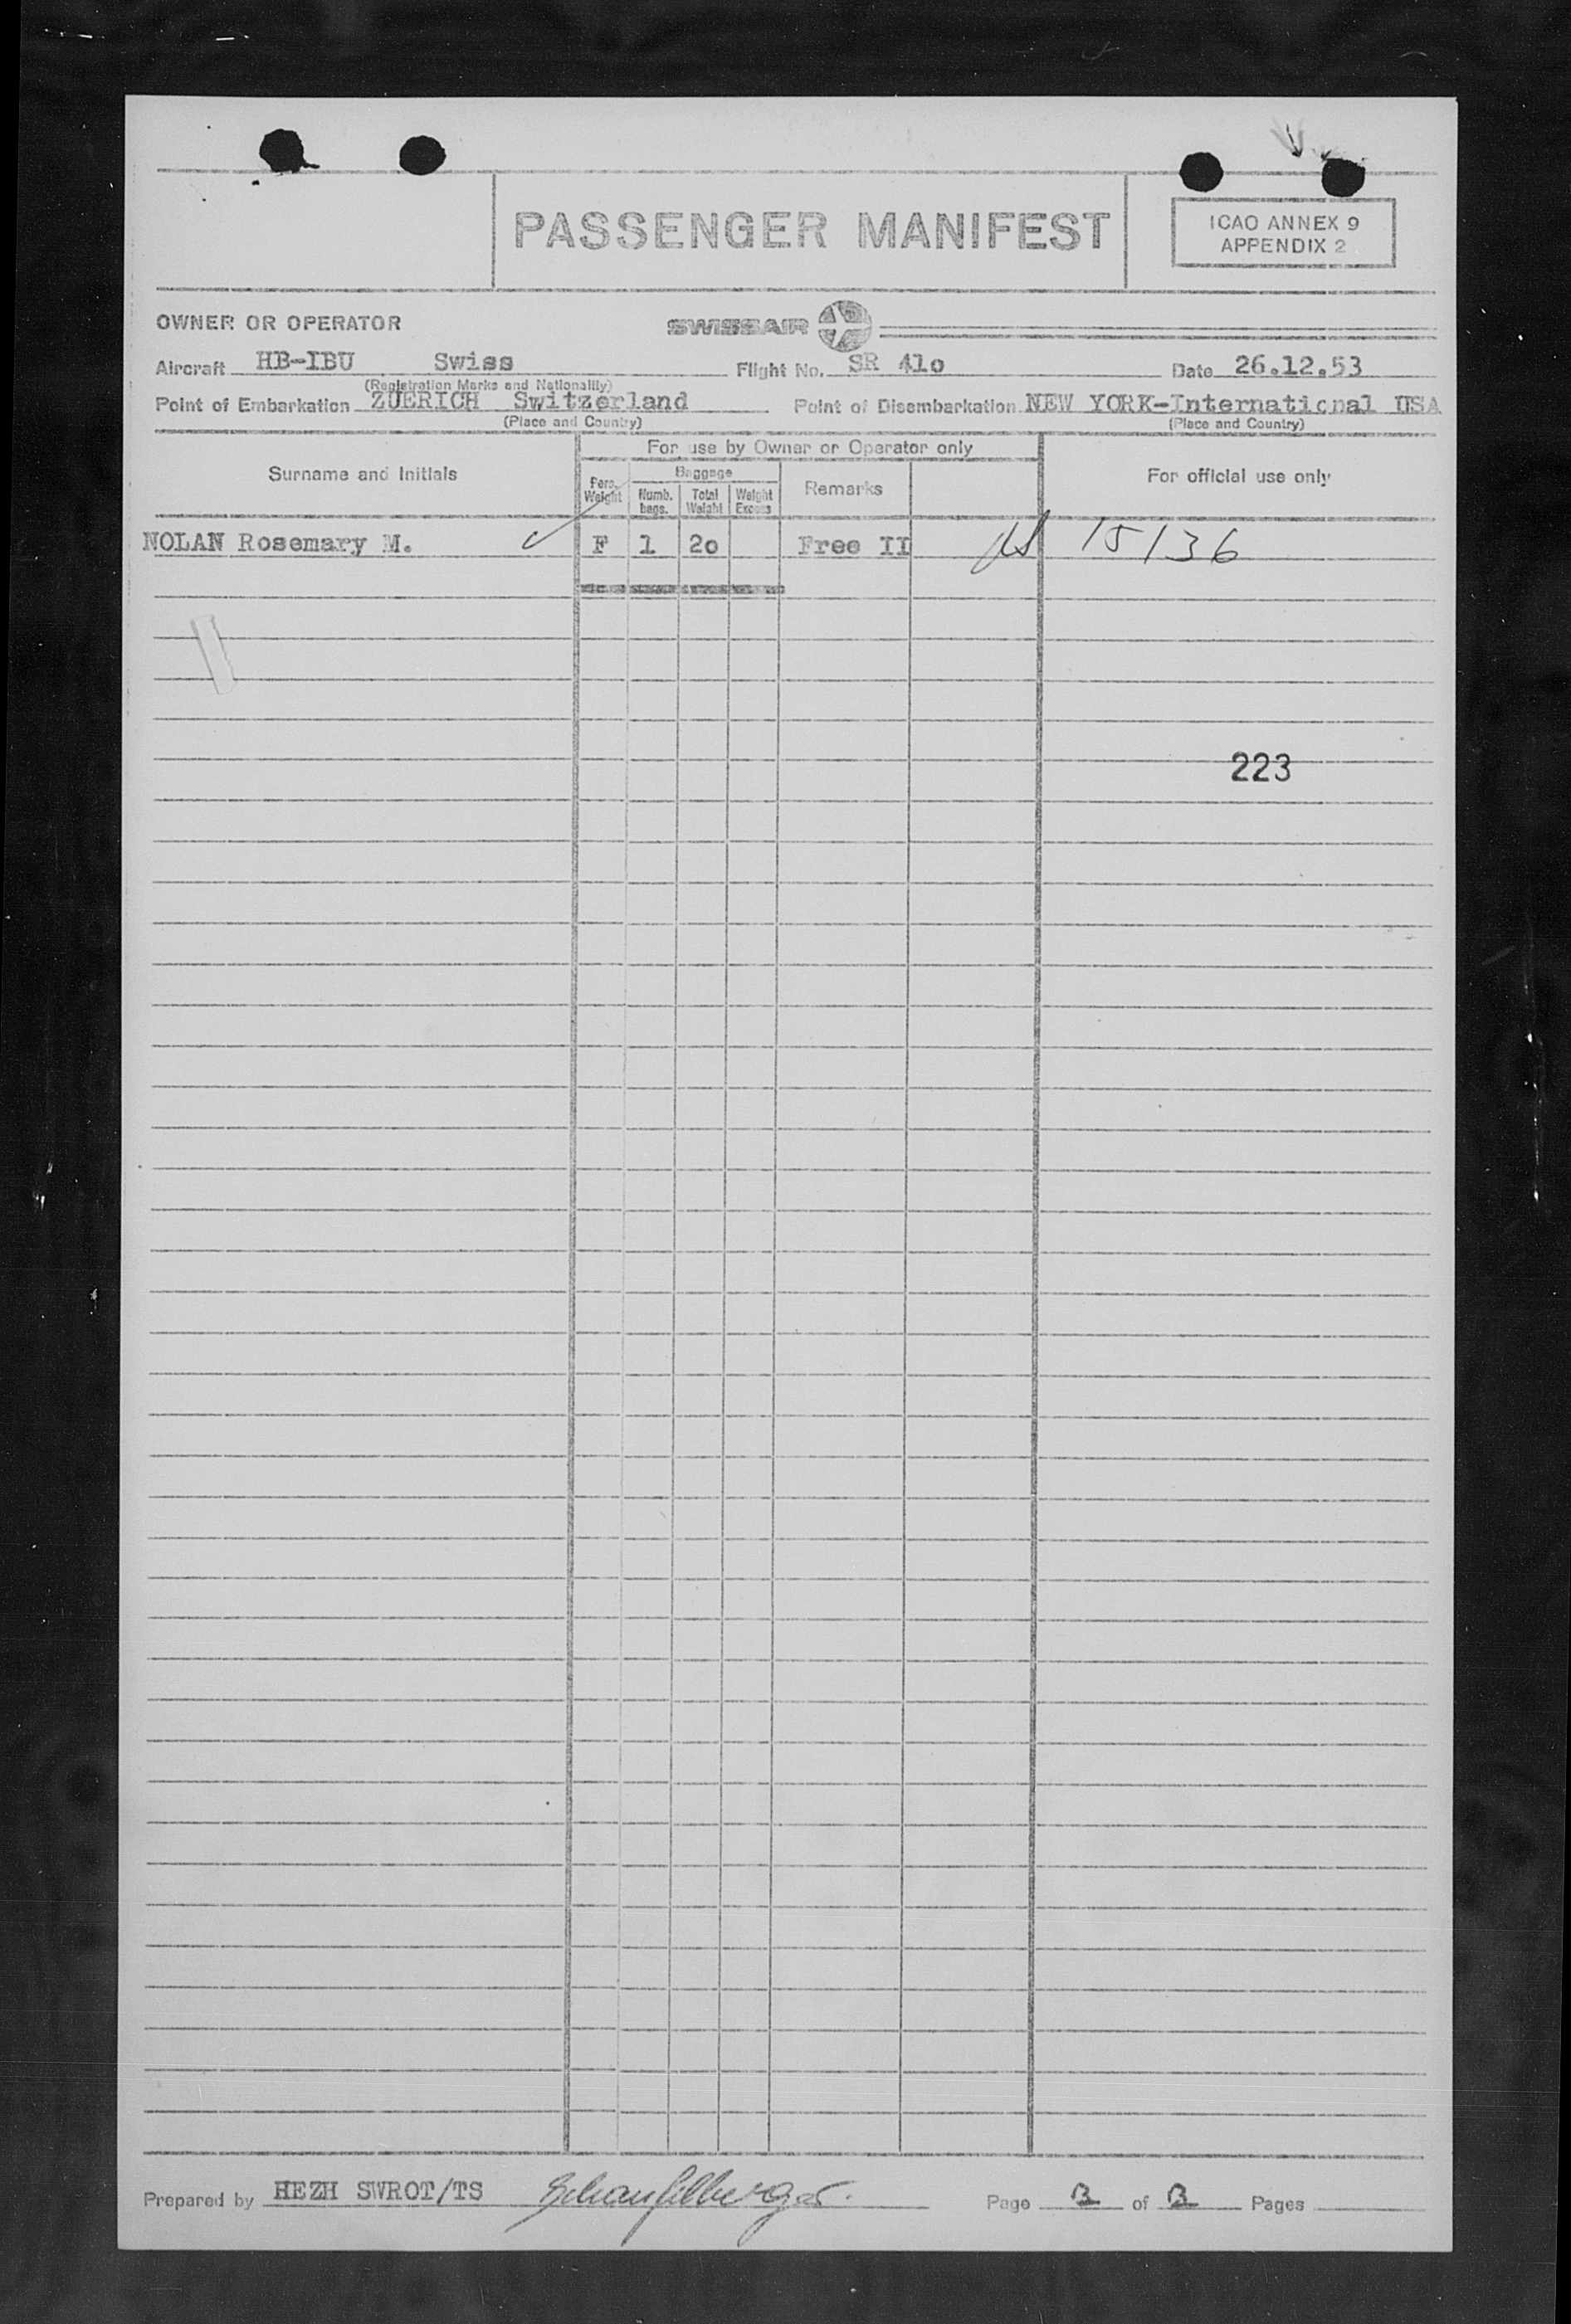 PASSENGER MANIFEST
ICAO ANNEX 9
APPENDIX 2
OWNER OR OPERATOR SWISSAIR
Aircraft HB-IBU Swiss Flight No. SR 41o Date 26.12.53
(Registration Marks and Nationality)
Point of Embarkation ZUERICH Switzerland Point of Disembarkation NEW YORK-International USA
(Place and Country) (Place and Country)
For use by Owner or Operator only
Surname and Initials Pers. Weight Baggage Remarks For official use only
Numb. bags. Total Weight Weight Excess
NOLAN Rosemary M. F 1 2o Free II 15136
223
Prepared by HEZH SWROT/TS Page of Pages